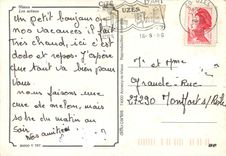 Nimes
Les arènes
UZES
D'ART
Un petit bonjour de
nos vacances il fait
très chaud, ici c'est
dodo et repos. J'espère
que tout va bien pour
vous
nous faisons une
cure de melon, mais
du matin au
soir
Nos amitiés
M et Mme
Grande Rue
27290 Montfort s/Risle